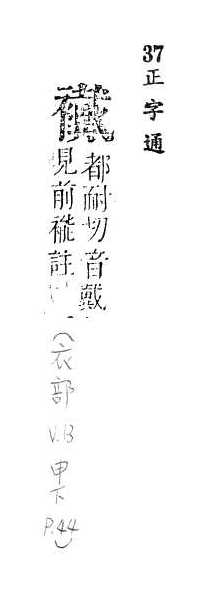 37正字通
襶
都耐切音戴
見前褦註
(衣部 V.13 申下 P.44)